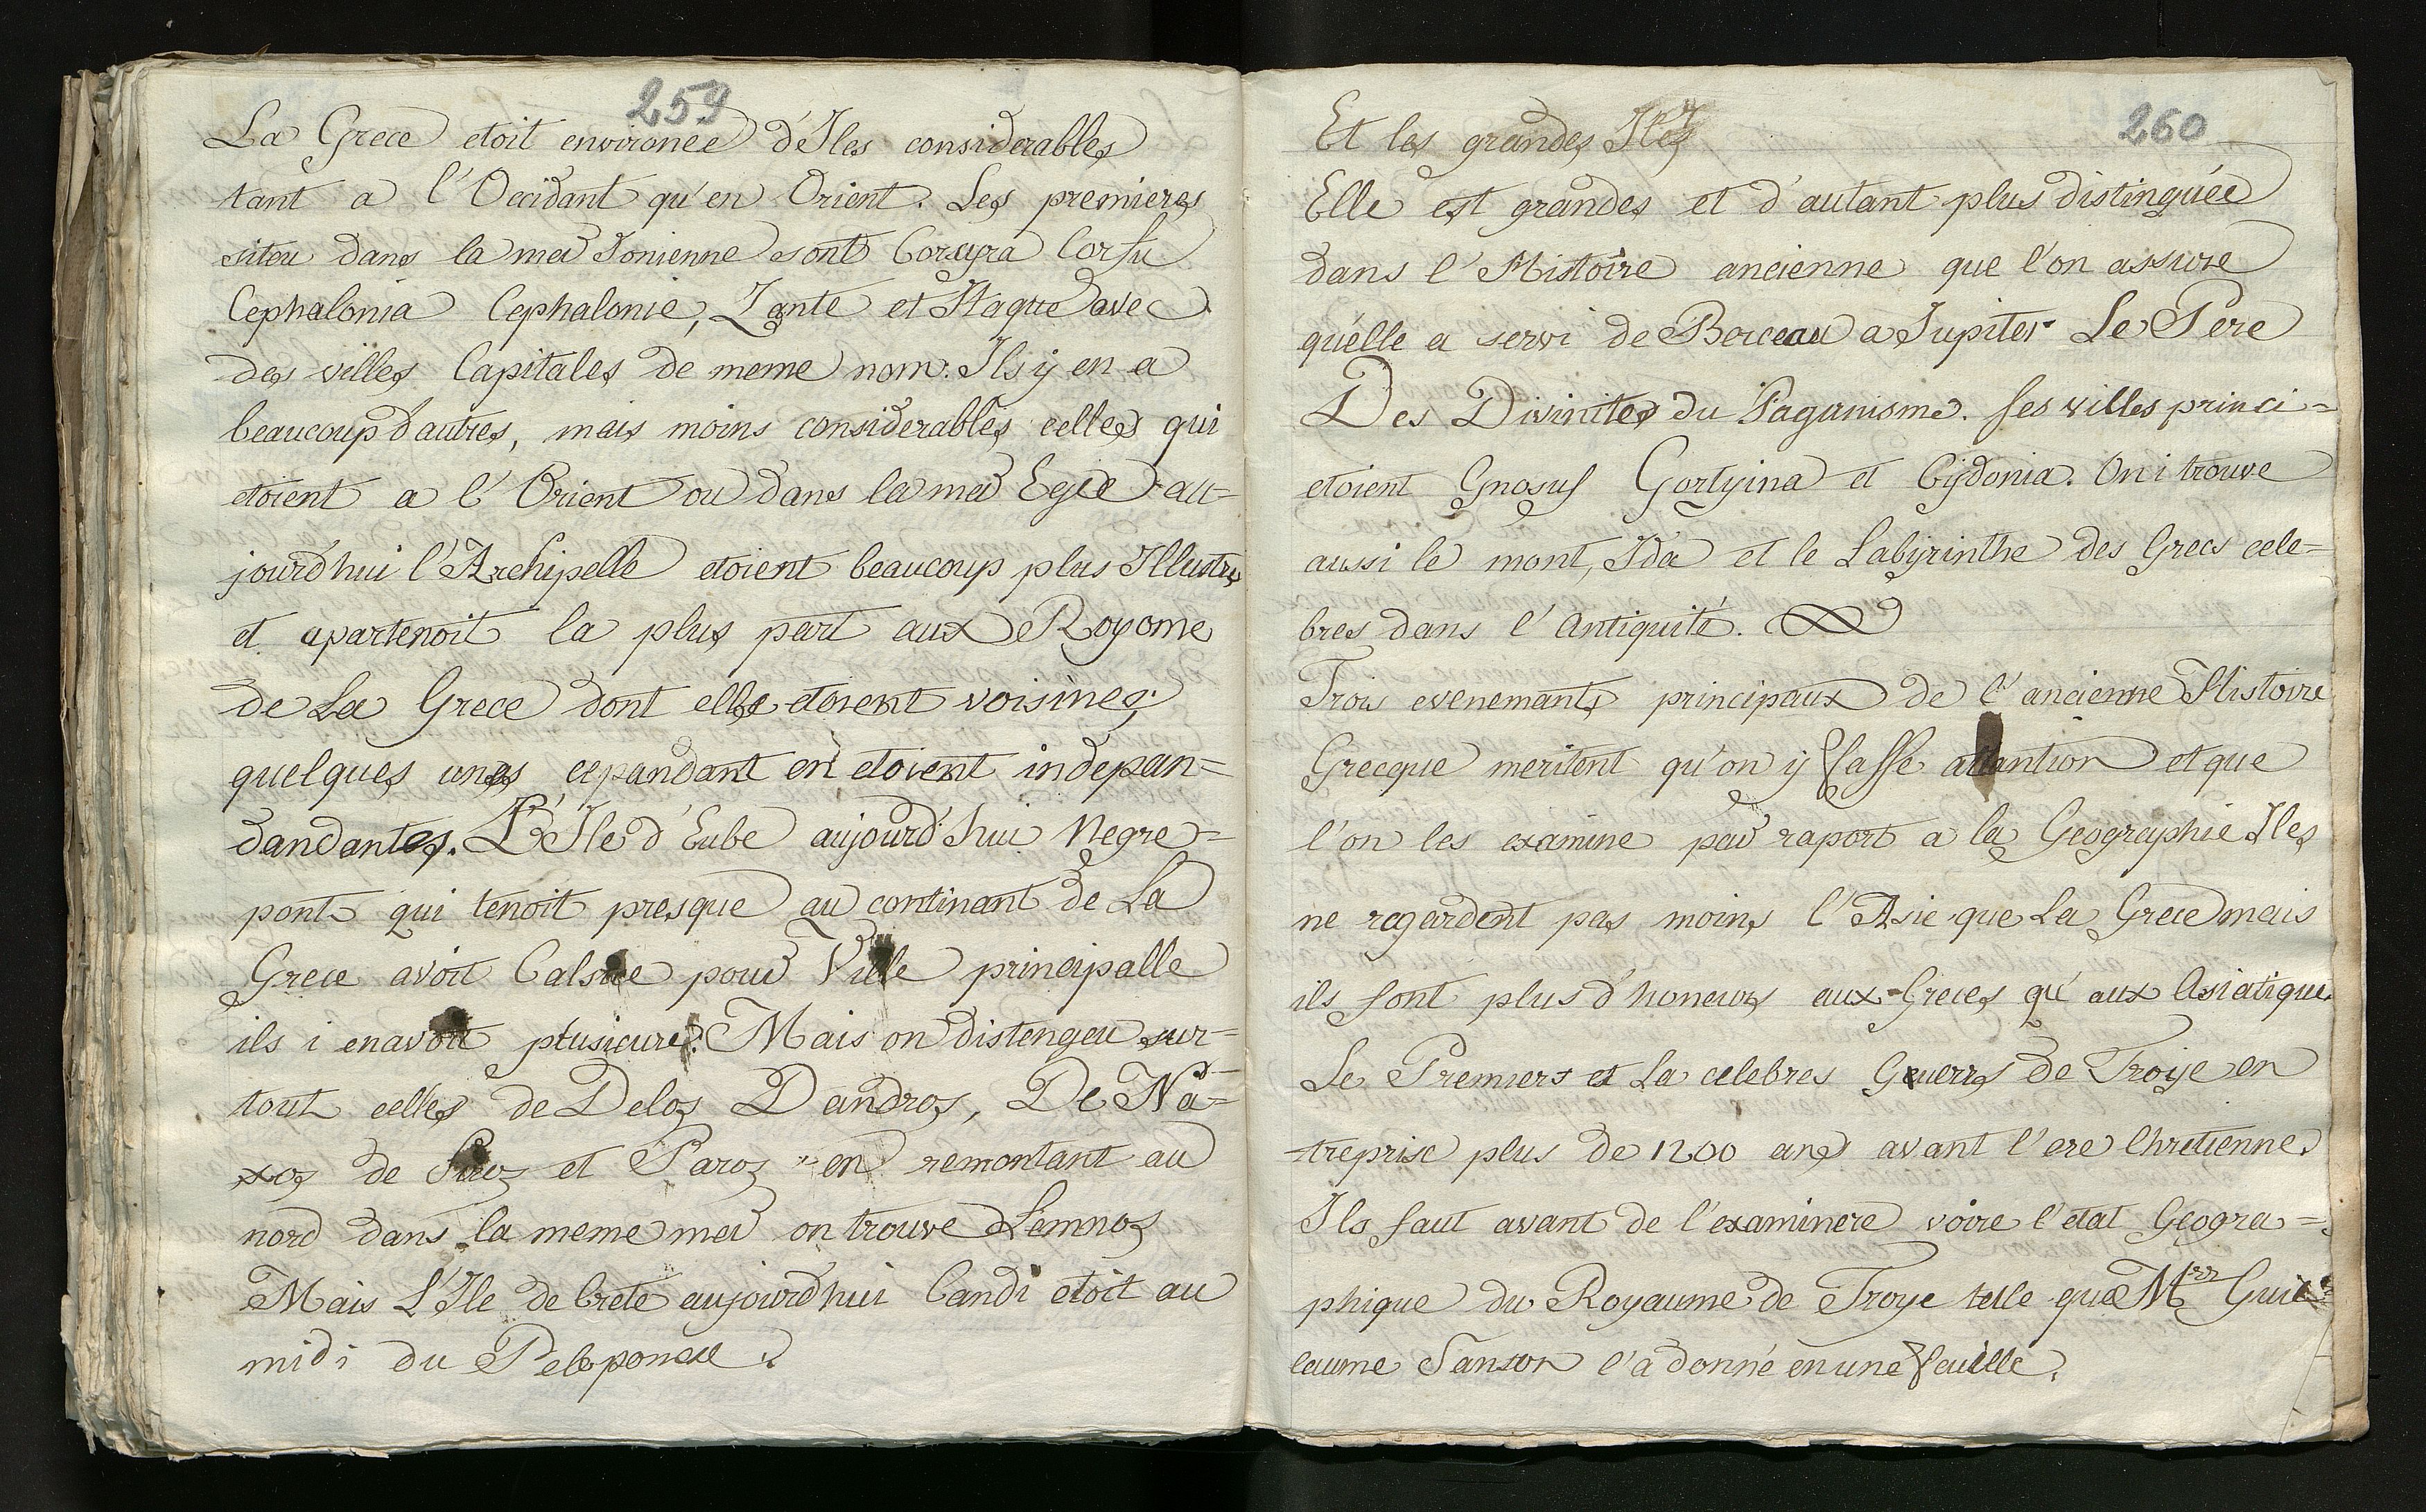 259
La Grece etoit environee d'Iles considerables
tant a l'Occidant qu'en Orient. Les premieres
siteu dans la mer Ionienne sont Corayra Corfu
Cephalonia Cephalonie, Zante et Itaque avec
des villes Capitales de meme nom. Ils y en a
beaucoup d'autres, mais moins considerables celles qui
etoient a l'Orient ou dans la mer Egée au=
jourd'hui l'Archipelle etoient beaucoup plus Illustres
et apartenoit la plus part aux Royome
de La Grece dont elle etoient voisines;
quelques unes cepandant en etoient indepan=
dandantes. L'Ile d'Eube aujourd'hui Negre=
pont qui tenoit presque au continant de La
Grece avoit pour Ville principalle
ils i enavoit plusieurs. Mais on distengeu sur=
tout celles de Delos Dandros, De Na=
xos de et Paros en remontant au
nord dans la meme mer on trouve Lemnos
Mais L'Ile de Crete aujourd'hui Candi etoit au
midi du Peleponese.
260
Et les grandes Iles
Elle est grandes et d'autant plus distinguée
dans l'Histoire ancienne que l'on assure
qu'elle a servi de Berceau a Jupiter Le Pere
Des Divinites du Paganisme. ses villes princi=
etoient Gnosus Gortyina et Cydonia. On i trouve
aussi le mont, Ida et le Labyrinthe des Grecs cele=
bres dans l'Antiquité.
Trois evenemants principaux de l'ancienne Histoire
Grecque meritent qu'on y fasse attantion et que
l'on les examine par raport a la Geographie Iles
ne regardent pas moins l'Asie que La Grece mais
ils font plus d'honeurs aux Greces qu'aux Asiatique.
Le Premiers et La celebres Guerrs de Troye en
treprise plus de 1200 ans avant l'ere Chretienne.
Ils faut avant de l'examinere voire l'etat Geogra=
phique du Royaume de Troye telle que Mrr Guil=
laume Sanson l'a donné en une feuille.